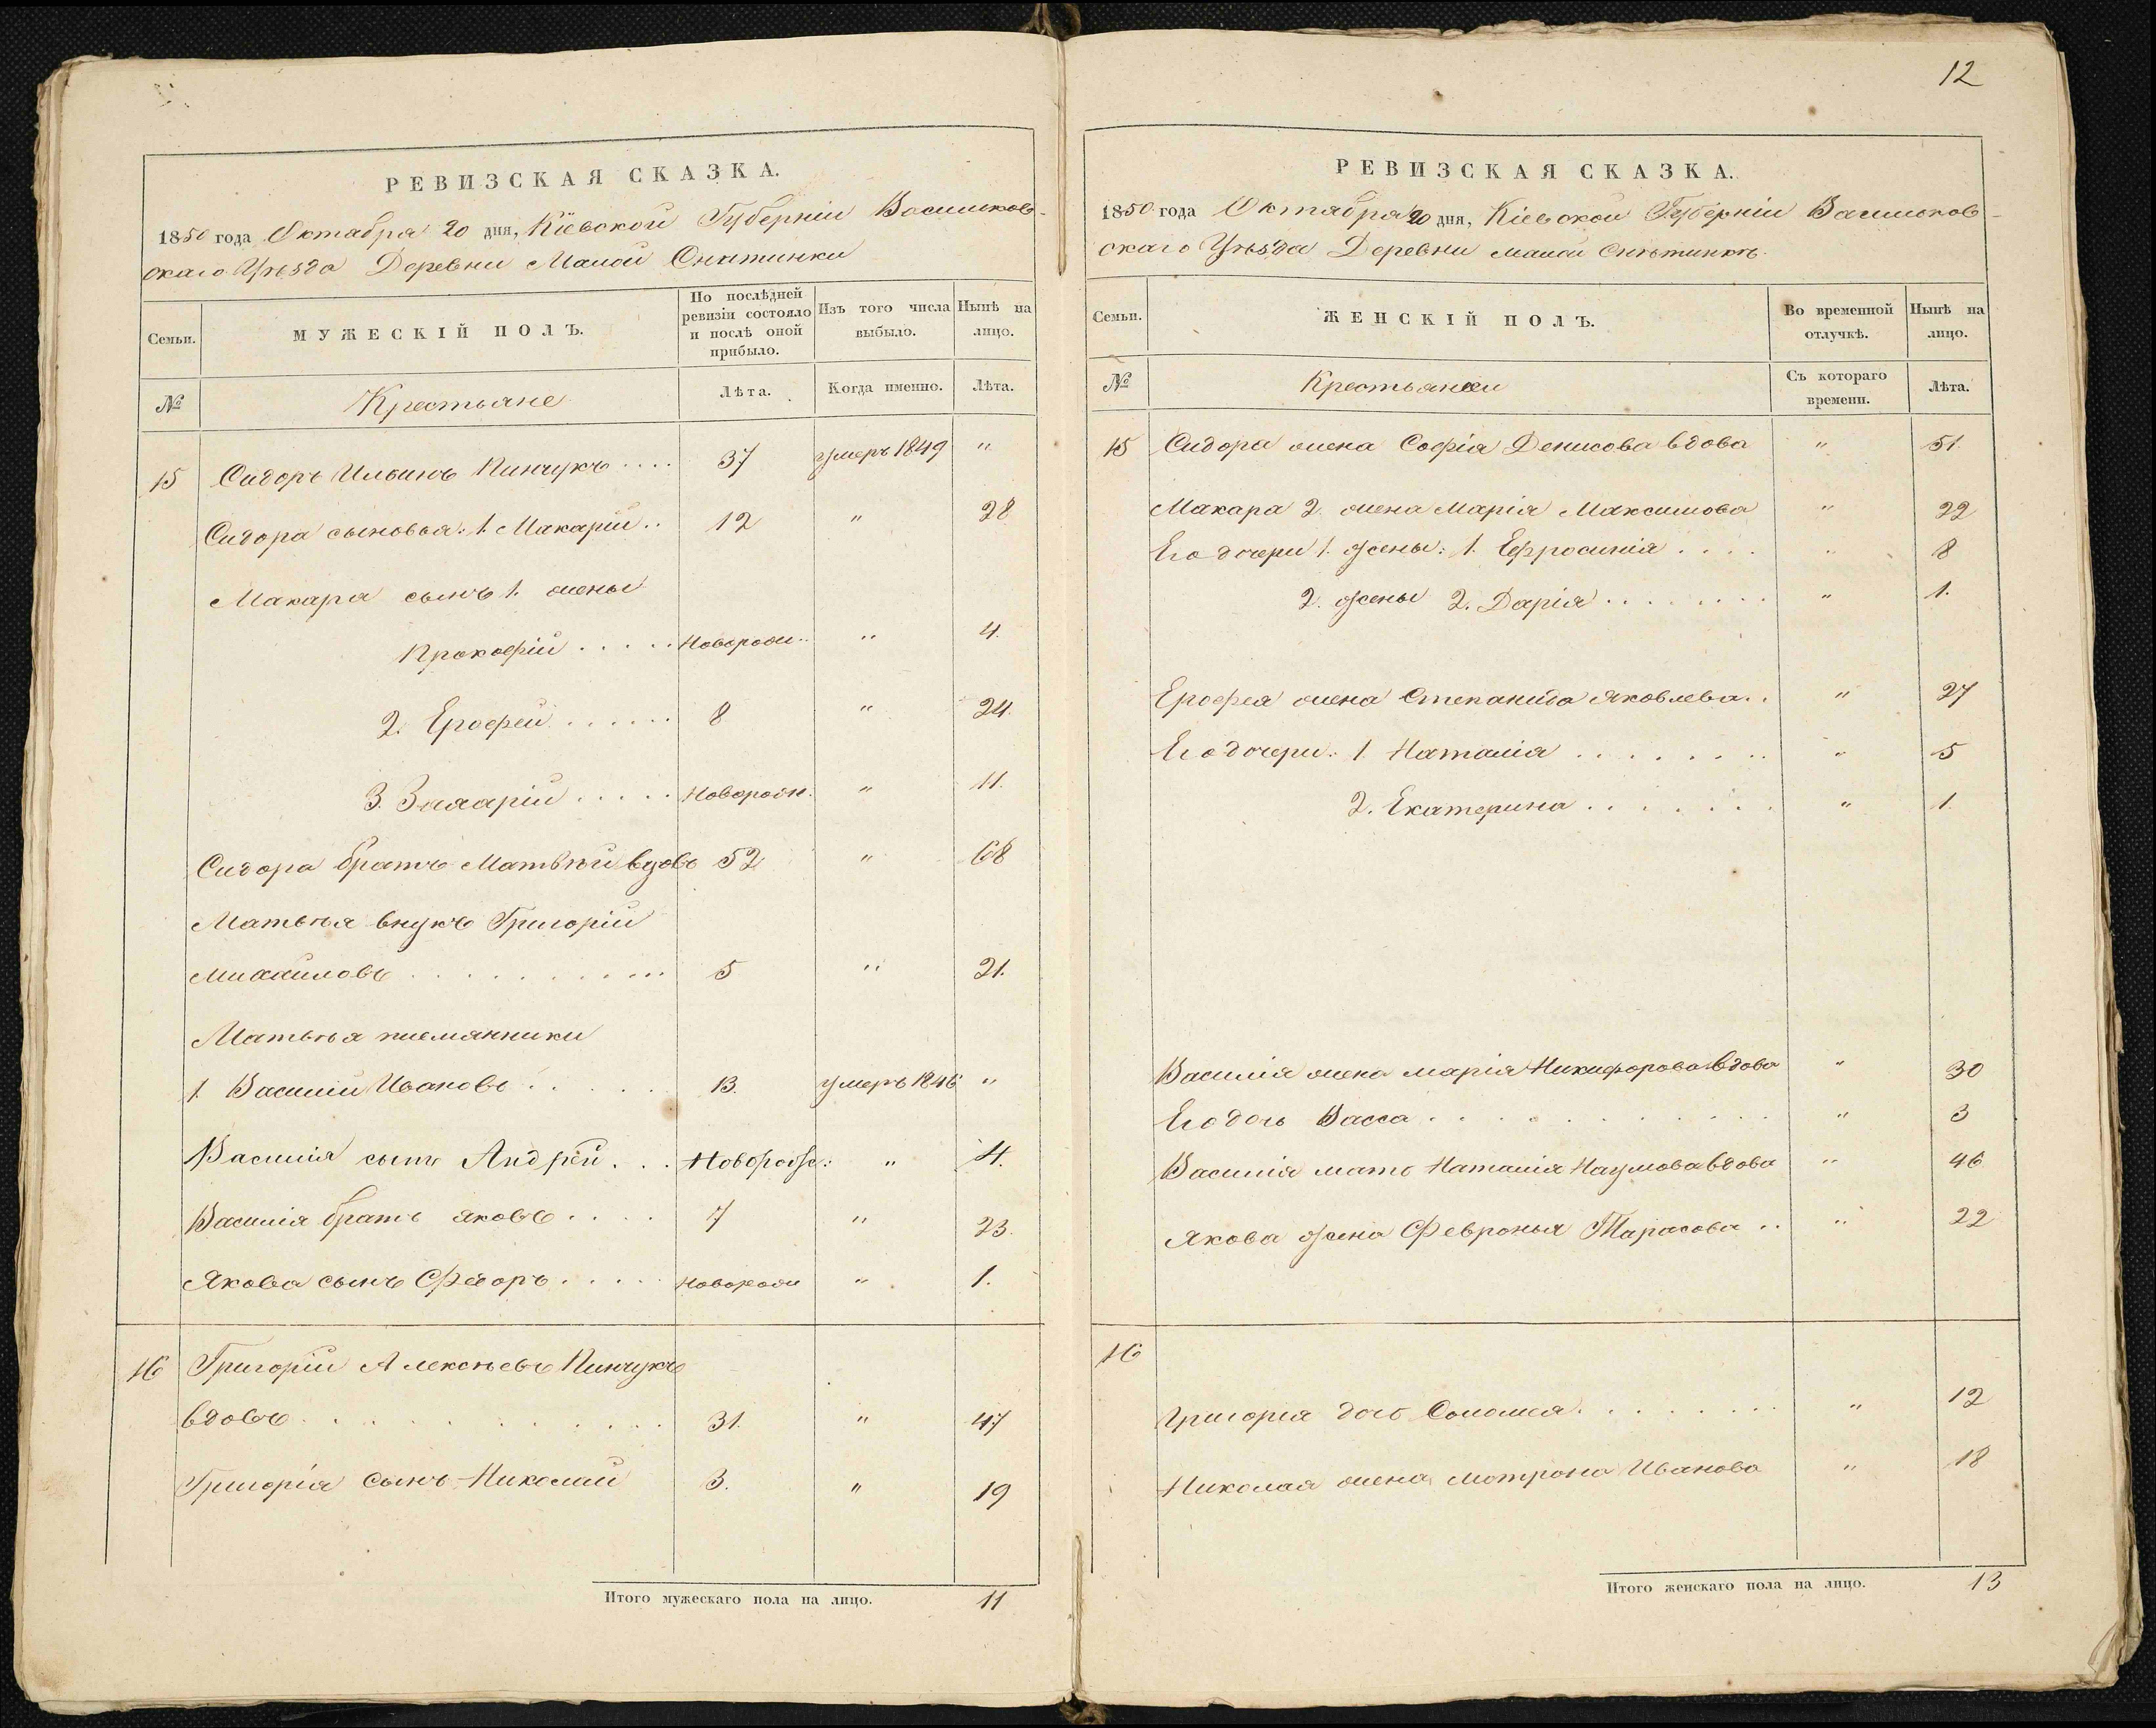 РЕВИЗСКАЯ СКАЗКА.
1850 года Октября 20 дня, Кіевской Губерніи Васильков-
скаго Уѣзда Деревни Малой Снѣтинки
Семьи. МУЖЕСКІЙ ПОЛЪ. По послѣдней ревизіи состояло и послѣ оной прибыло. Изъ того числа выбыло. Нынѣ на лицо.
№ Крестьяне Лѣта. Когда именно. Лѣта.
15 Сидоръ Ильинъ Пинчукъ .... 37 умеръ 1849 "
Сидора сыновья: 1. Макарій .. 12 " 28
Макара сынъ 1. жены
Прокофій ..... Новорож.. " 4.
2. Ерофей ...... 8 " 24.
3. Захарій ..... Новорожд. " 11.
Сидора братъ Матвѣй вдовъ 52 " 68
Матвѣя внукъ Григорій
Михайловъ ............ 5 " 21.
Матвѣя племянники
1. Василій Ивановъ ..... 13. умеръ 1846 "
Василія сынъ Андрей ... Новорожд: " 4.
Василія братъ Яковъ .... 7 " 23.
Якова сынъ Федоръ ..... новорож " 1.
16 Григорій Алексѣевъ Пинчукъ
вдовъ ........ 31. " 47
Григорія сынъ Николай 3. " 19
Итого мужескаго пола на лицо. 11
12
РЕВИЗСКАЯ СКАЗКА.
1850 года Октября 20 дня, Кіевской Губерніи Васильков-
скаго Уѣзда Деревни Малой Снѣтинкѣ.
Семьи. ЖЕНСКІЙ ПОЛЪ. Во временной отлучкѣ. Нынѣ на лицо.
№ Крестьянки Съ котораго времени. Лѣта.
15 Сидора жена Софія Денисова вдова " 51.
Макара 2. жена Марія Максимова " 22
Его дочери 1. жены: 1. Ефросинія .... " 8
2. жены 2. Дарія ........ " 1.
Ерофея жена Степанида Яковлева.. " 27
Его дочери: 1. Наталія ........ " 5
2. Екатерина ....... " 1.
Василія жена Марія Никифорова вдова " 30
Его дочь Васса .......... " 3
Василія мать Наталія Наумова вдова " 46
Якова жена Февронья Тарасова .. " 22
16
Григорія дочь Соломея ........ " 12
Николая жена Мотрона Иванова " 18
Итого женскаго пола на лицо. 13